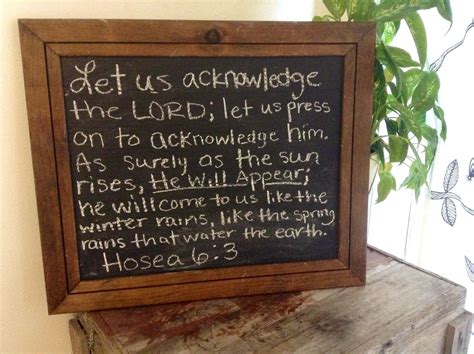 Let us acknowledge
the LORD; let us press
on to acknowledge him.
As surely as the sun
rises, He will Appear;
he will come to us like the
winter rains, like the spring
rains that water the earth.
Hosea 6:3